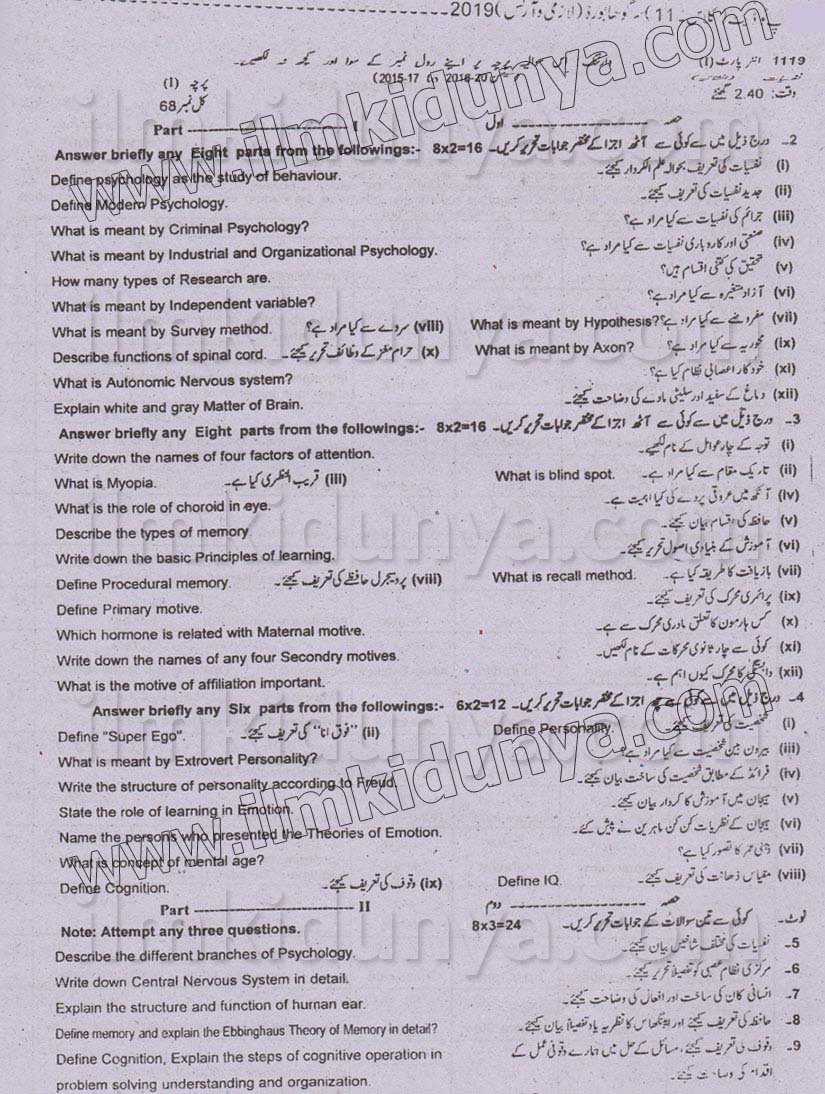 2019
1119 انٹر پارٹ (I) وارننگ: اس سوالیہ پرچہ پر اپنے رول نمبر کے سوا اور کچھ نہ لکھیں۔
پرچہ (I)
وقت: 2.40 گھنٹے کل نمبر 68
Part ------------ I حصہ ------------ اول
Answer briefly any Eight parts from the followings:- 8x2=16 2۔ درج ذیل میں سے کوئی سے آٹھ اجزا کے مختصر جوابات تحریر کریں۔
Define psychology as the study of behaviour. (i) نفسیات کی تعریف بحوالہ علم الکردار کیجئے۔
Define Modern Psychology. (ii) جدید نفسیات کی تعریف کیجئے۔
What is meant by Criminal Psychology? (iii) جرائم کی نفسیات سے کیا مراد ہے؟
What is meant by Industrial and Organizational Psychology. (iv) صنعتی اور کاروباری نفسیات سے کیا مراد ہے؟
How many types of Research are. (v) تحقیق کی کتنی اقسام ہیں؟
What is meant by Independent variable? (vi) آزاد متغیرہ سے کیا مراد ہے؟
What is meant by Survey method. (viii) سروے سے کیا مراد ہے؟ What is meant by Hypothesis? (vii) مفروضے سے کیا مراد ہے؟
Describe functions of spinal cord. (x) حرام مغز کے وظائف تحریر کیجئے۔ What is meant by Axon? (ix) محوریہ سے کیا مراد ہے؟
What is Autonomic Nervous system? (xi) خودکار اعصابی نظام کیا ہے؟
Explain white and gray Matter of Brain. (xii) دماغ کے سفید اور سلیٹی مادے کی وضاحت کیجئے۔
Answer briefly any Eight parts from the followings:- 8x2=16 3۔ درج ذیل میں سے کوئی سے آٹھ اجزا کے مختصر جوابات تحریر کریں۔
Write down the names of four factors of attention. (i) توجہ کے چار عوامل کے نام لکھیے۔
What is Myopia. (iii) قریب النظری کیا ہے۔ What is blind spot. (ii) تاریک مقام سے کیا مراد ہے۔
What is the role of choroid in eye. (iv) آنکھ میں عروقی پردے کی کیا اہمیت ہے۔
Describe the types of memory (v) حافظہ کی اقسام بیان کیجئے۔
Write down the basic Principles of learning. (vi) آموزش کے بنیادی اصول تحریر کیجئے۔
Define Procedural memory. (viii) پروسیجرل حافظے کی تعریف کیجئے۔ What is recall method. (vii) بازیافت کا طریقہ کیا ہے۔
Define Primary motive. (ix) پرائمری محرک کی تعریف کیجئے۔
Which hormone is related with Maternal motive. (x) کس ہارمون کا تعلق مادری محرک سے ہے۔
Write down the names of any four Secondry motives. (xi) کوئی سے چار ثانوی محرکات کے نام لکھیں۔
What is the motive of affiliation important. (xii) وابستگی کا محرک کیوں اہم ہے۔
Answer briefly any Six parts from the followings:- 6x2=12 4۔ درج ذیل میں سے کوئی سے چھ اجزا کے مختصر جوابات تحریر کریں۔
Define "Super Ego". (ii) "فوق انا" کی تعریف کیجئے۔ Define Personality. (i) شخصیت کی تعریف کیجئے۔
What is meant by Extrovert Personality? (iii) بیرون بین شخصیت سے کیا مراد ہے؟
Write the structure of personality according to Freud. (iv) فرائڈ کے مطابق شخصیت کی ساخت بیان کیجئے۔
State the role of learning in Emotion. (v) ہیجان میں آموزش کا کردار بیان کیجئے۔
Name the persons who presented the Theories of Emotion. (vi) ہیجان کے نظریات کن کن ماہرین نے پیش کئے۔
What is concept of mental age? (vii) ذہنی عمر کا تصور کیا ہے؟
Define Cognition. (ix) وقوف کی تعریف کیجئے۔ Define IQ. (viii) مقیاس ذہانت کی تعریف کیجئے۔
Part ------------ II حصہ ------------ دوم
Note: Attempt any three questions. 8x3=24 نوٹ۔ کوئی سے تین سوالات کے جوابات تحریر کریں۔
Describe the different branches of Psychology. 5۔ نفسیات کی مختلف شاخیں بیان کیجئے۔
Write down Central Nervous System in detail. 6۔ مرکزی نظام عصبی کو تفصیلاً تحریر کیجئے۔
Explain the structure and function of human ear. 7۔ انسانی کان کی ساخت اور افعال کی وضاحت کیجئے۔
Define memory and explain the Ebbinghaus Theory of Memory in detail? 8۔ حافظہ کی تعریف کیجئے اور ایبنگھاس کا نظریہ یاد تفصیلاً بیان کیجئے۔
Define Cognition, Explain the steps of cognitive operation in 9۔ وقوف کی تعریف کیجئے، مسائل کے حل میں ہمارے وقوفی عمل کے
problem solving understanding and organization. اقدام کی وضاحت کیجئے۔
www.ilmkidunya.com